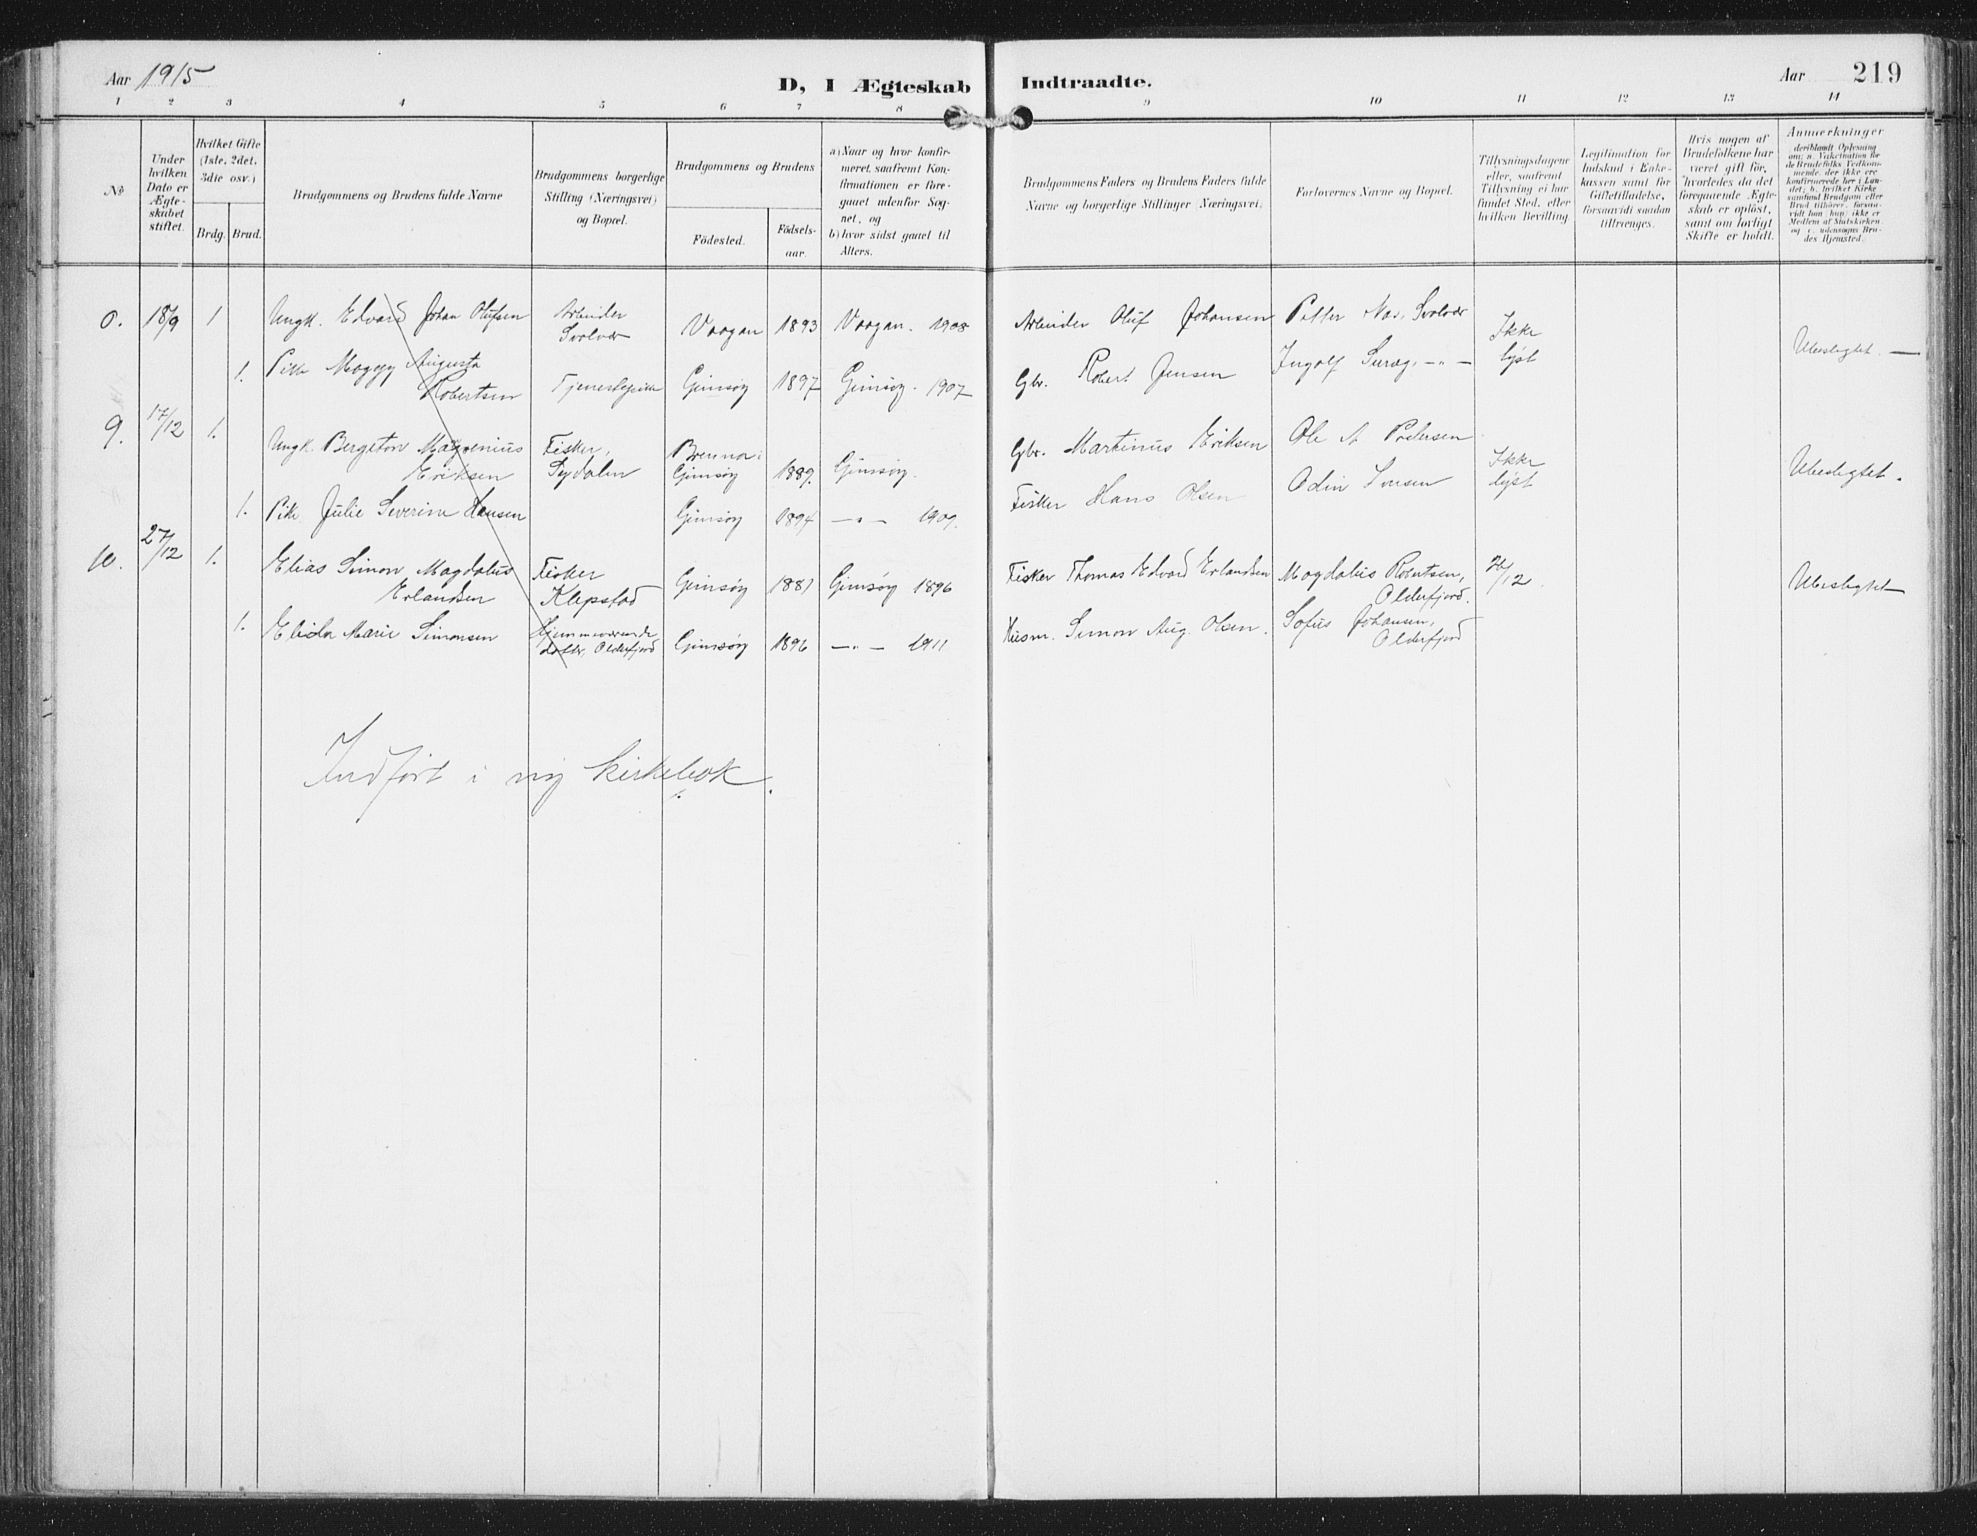 Aar 1915
D, I Ægteskab Indtraadte.
Aar 219
1 2 3 4 5 6 7 8 9 10 11 12 13 14
No
Under hvilken Dato er Ægteskabet stiftet.
Hvilket Gifte (1ste, 2det, 3die osv.)
Brdg. Brud.
Brudgommens og Brudens fulde Navne
Brudgommens borgerlige Stilling (Næringsvei) og Bopæl.
Brudgommens og Brudens
Födested.
Födselsaar.
a) Naar og hvor konfirmeret, saafremt Konfirmationen er foregaaet udenfor Sognet, og
b) hvor sidst gaaet til Alters.
Brudgommens Faders og Brudens Faders fulde Navne og borgerlige Stillinger (Næringsvei).
Forlovernes Navne og Bopæl.
Tillysningsdagene eller, saafremt Tillysning ei har fundet Sted, efter hvilken Bevilling.
Legitimation for Indskud i Enkekassen samt for Giftetilladelse, forsaavidt saadan tiltrænges.
Hvis nogen af Brudefolkene har været gift før, hvorledes da det foregaaende Ægteskab er opløst, samt om lovligt Skifte er holdt.
Anmerkninger
deriblandt Oplysning om: a. Vakcination for de Brudefolks Vedkommende, der ikke ere konfirmerede her i Landet; b. hvilket Kirkesamfund Brudgom eller Brud tilhører, forsaavidt han/hun ikke er Medlem af Statskirken og c. udensogns Brudes Hjemsted.
8. 18/9 1 Ungk. Edvard Johan Olufsen Arbeider Svolvær Vaagan 1893 Vaagan. 1908 Arbeider Oluf Johansen Petter Nos, Svolvær Ikke lyst Ubeslegtet. —
1. Pike Moggy Augusta Robertsen Tjenestepike Gimsøy 1897 Gimsøy. 1907 Gbr. Robert Jensen Ingolf -"-
9. 17/12 1. Ungk. Bergeton Eriksen Fisker, Sydalen Brenna i Gimsøy 1889. Gimsøy. Gbr. Martinus Eriksen Ole A Pedersen Ikke lyst Ubeslegtet.
1. Pike Julie Severine Hansen Gimsøy 1894 -"- 1909. Fisker Hans Olsen Odin Iversen
10. 27/12 1. Elias Simon Magdalus Erlandsen Fisker Klepstad Gimsøy 1881 Gimsøy 1896 Fisker Thomas Edvard Erlandsen Magdalus Robertsen, Olderfjord. /12 Ubeslegtet
1. Elida Marie Simonsen Hjemmeværende datter, Olderfjord Gimsøy 1896 -"- 1911 Husm. Simon Aug. Olsen. Sofus Johansen, Olderfjord
Indført i ny kirkebok.